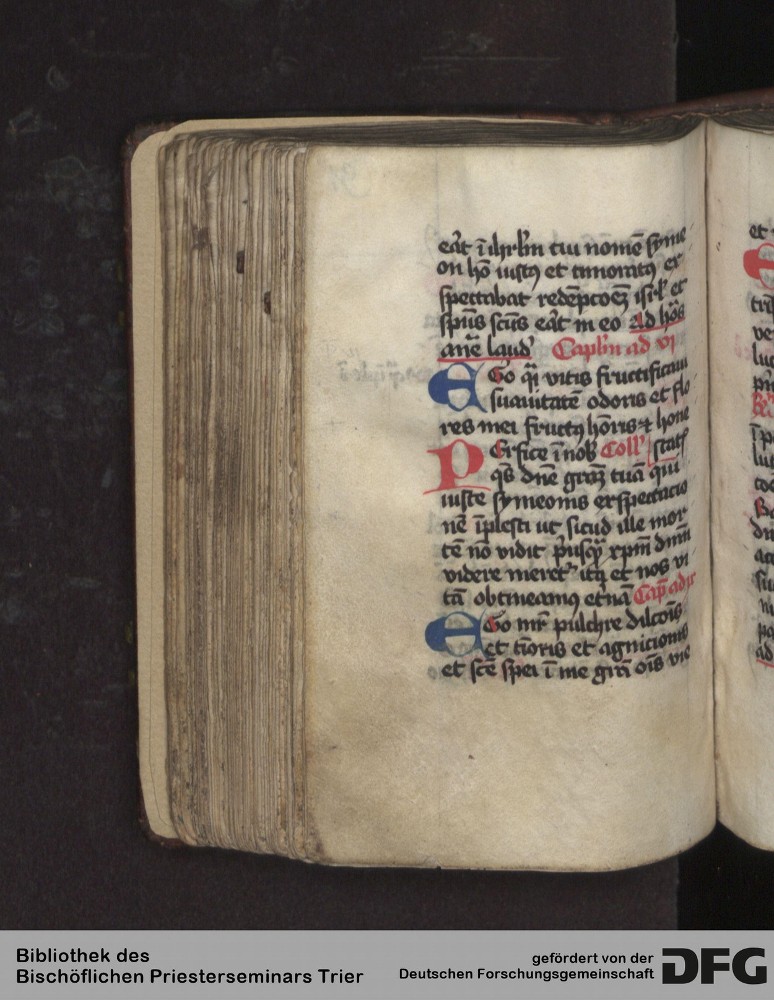 eāt ī ihrl'm cui nomē syme
on hō iustꝯ et timoratꝯ ex
spectabat redēpcoēꝫ isrl' et
spūs scūs eāt in eo ad hōs
anē laud' Capl'm ad vi
EGo q̄i vitis fructificaui
suauitatē odoris et flo
res mei fructꝯ hōris ⁊ hone
PErfice ī nob' Coll' statꝭ
q̄s dn̄e grāꝫ tuā qui
iuste symeonis exspectacio
nē īplesti ut sicud ille mor
tē nō vidit p̄usqꝫ xpm̄ dnm̄
videre meret' itqꝫ et nos vi
tā obtineamꝯ et̄nā Cap̄ ad ix
EGo mr̄ pulchre dilcōis
et tīoris et agnicionis
et scē spei ī me grā oīs vie
et
Bibliothek des
Bischöflichen Priesterseminars Trier
gefördert von der
Deutschen Forschungsgemeinschaft
DFG